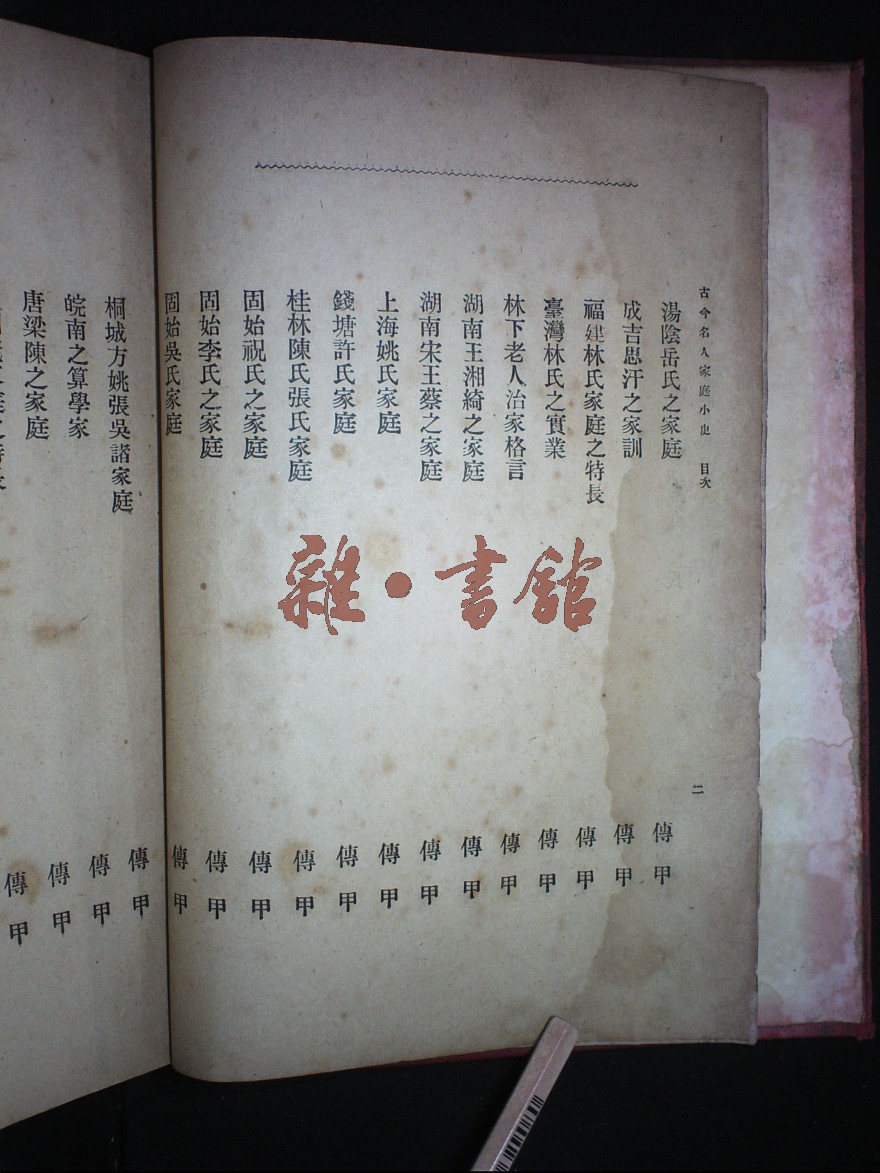 古今名人家庭小史 目次
二
湯陰岳氏之家庭 傳甲
成吉思汗之家訓 傳甲
福建林氏家庭之特長 傳甲
臺灣林氏之實業 傳甲
林下老人治家格言 傳甲
湖南王湘綺之家庭 傳甲
湖南宋王蔡之家庭 傳甲
上海姚氏家庭 傳甲
錢塘許氏家庭 傳甲
桂林陳氏張氏家庭 傳甲
固始祝氏之家庭 傳甲
固始李氏之家庭 傳甲
固始吳氏家庭 傳甲
桐城方姚張吳諸家庭 傳甲
皖南之算學家 傳甲
唐梁陳之家庭 傳甲
傳甲
雜·書館